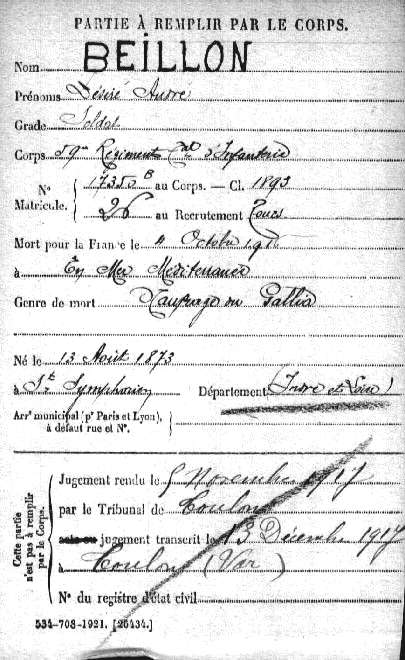 PARTIE À REMPLIR PAR LE CORPS.
Nom BEILLON
Prénoms Désiré André
Grade Soldat
Corps 59me Régiment Tal d'Infanterie
N° Matricule. { 17350 B au Corps. — Cl. 1893
26 au Recrutement Tours
Mort pour la France le 4 Octobre 1916
à En Mer Méditerranée
Genre de mort Naufrage du Gallia
Né le 13 Août 1873
à St Symphorien Département (Indre et Loire)
Arrt municipal (pr Paris et Lyon),
à défaut rue et N°.
Cette partie n'est pas à remplir par le Corps.
Jugement rendu le 5 Novembre 1917
par le Tribunal de Toulon
jugement transcrit le 13 Décembre 1917
à Toulon (Var)
N° du registre d'état civil
534-708-1921. [26434.]